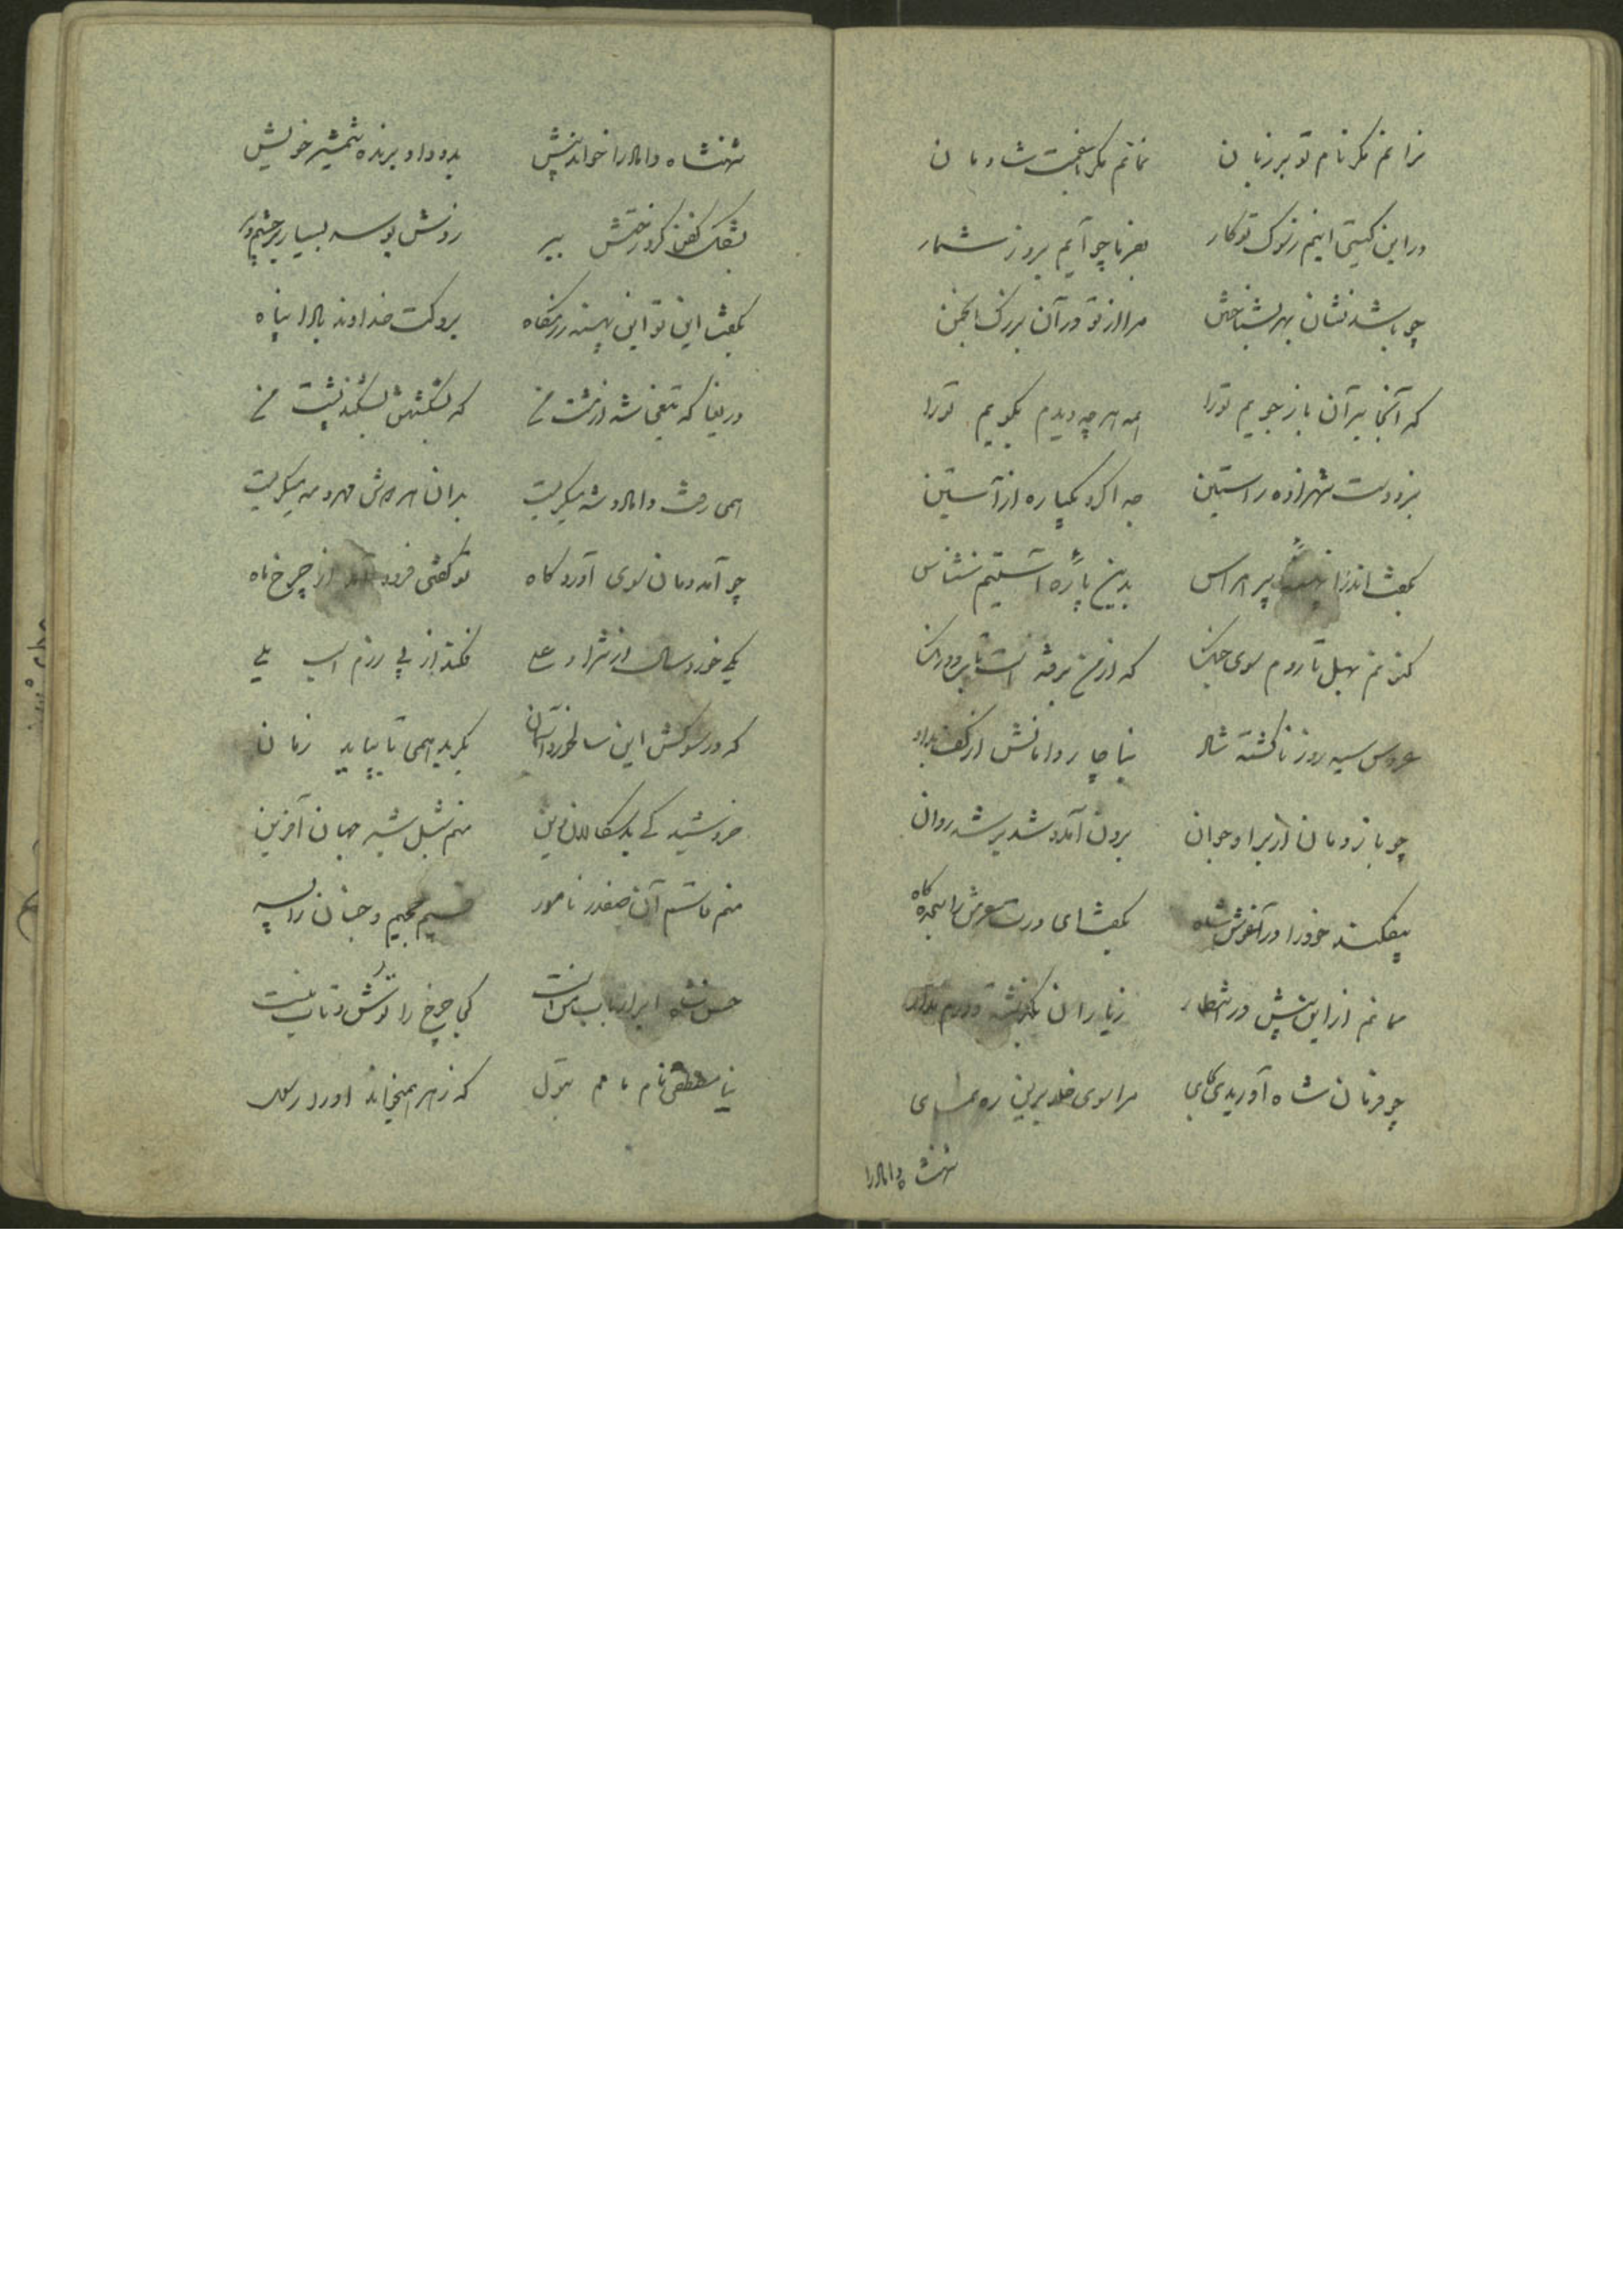 نرانم مگر نام تو بر زبان نمانم مگر با غمت شادمان
در این گیتی اینم ز سوک تو کار بفرما چو آیم بروز شمار
چو باشد نشان بهر بشناختن مرا از تو در آن بزرگ انجمن
که آنجا بر آن باز جویم تو را همه هر چه دیدم بگویم تو را
بزد دست شهزاده راستین جدا کرد یکپاره از آستین
بگفت اندر آنجا پر هراس بدین پاره آستینم شناس
کنونم بهل تا روم سوی جنگ که از من برفته است
عروس سیه روز ناگشته شاد بناچار دامانش از کف بداد
چو باز دمان از بر او جوان برون آمد و شد بر شه روان
بیفکند خود را در آغوش شاه بگفت ای درت عرش را سجده گاه
ممانم از این بیش در انتظار ز یاران
چو فرمان شاه آوریدی بجای مرا سوی خلد برین ره نمای
شهنشاه داماد را
شهنشاه داماد را خواند پیش بدو داد برنده شمشیر خویش
بشکل کفن کرد رختش ببر زدش بوسه بسیار بر چشم و سر
بگفت این تو این پهنه رزمگاه برو کت خداوند بادا پناه
دریغا که تیغی شد از مشت من که بشکستنش بشکند پشت من
همی رفت داماد و شه میگریست بدان هر دوش مهر و مه میگریست
چو آمد دمان سوی آوردگاه تو گفتی فرود آمد از چرخ ماه
یکی خورد سال از نژاد علی فکند از پی رزم اسب یلی
که در سوکش این سالخورد آسمان بگرید همی تا بپاید زمان
خروشید کای بد سگالان دین منم شبل شیر جهان آفرین
منم قاسم آن صفدر نامور قسیم جحیم و جنان را پسر
حسن شاه ابرار باب من است کی چرخ را توش و تاب من است
نیا مصطفی نام مامم بتول که زهرا همیخواند او را رسول